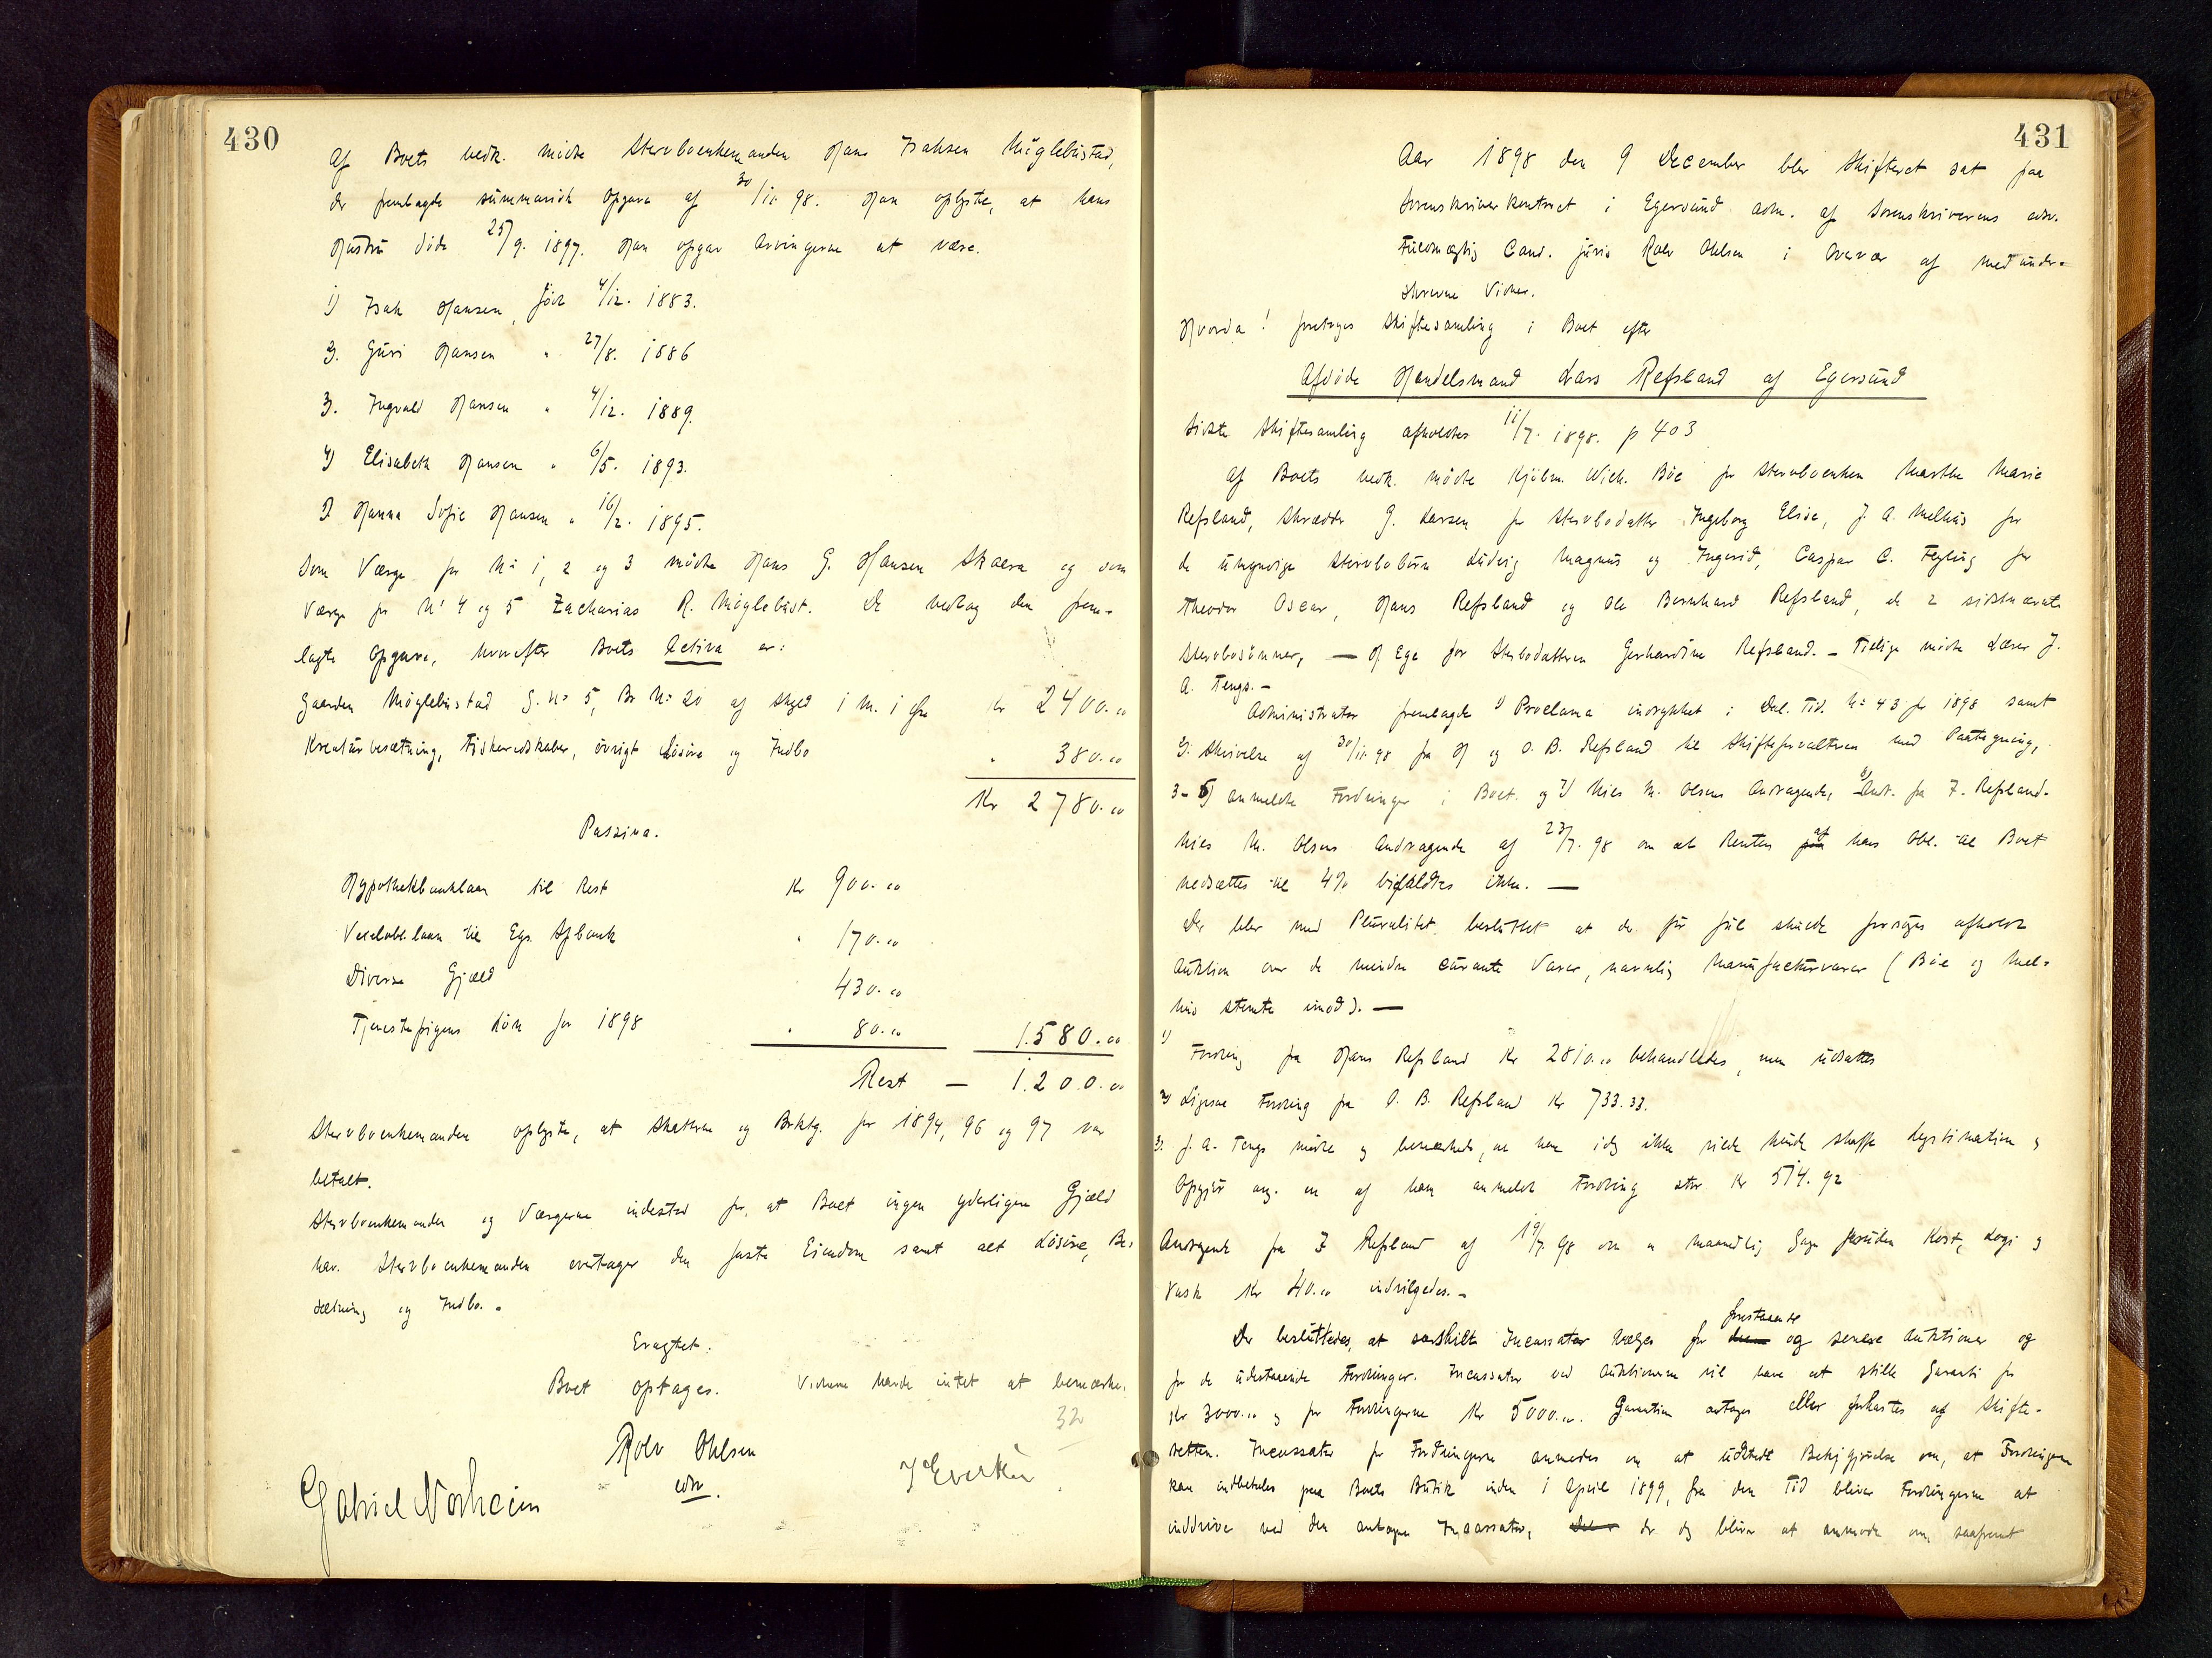 430
Af Boets vedk. mödte Stervboenkemanden Hans Isaksen Møglebüstad,
der fremlagde sümmarisk Opgave af 30/11. 98. Han oplyste, at hans
Hüstrü döde 25/9. 1897. Han opgav Arvingerne at være.
1) Isak Hansen, föd 4/12. 1883.
2. Güri Hansen " 27/8. 1886
3. Ingvald Hansen " 4/12. 1889.
4) Elisabeth Hansen " 6/5. 1893.
5 Hanna Sofie Hansen " 16/2. 1895.
Som Værge for No 1, 2 og 3 mödte Hans G. Hansen Skaara og som
Værge for No 4 og 5 Zacharias R. Møglebüst. De vedtog den frem-
lagte Opgave, hvorefter Boets Activa er:
Gaarden Møglebüstad G. No 5, Br No 20 af Skyld 1 M. 1 Øre Kr 2400.00
Kreatürbesætning, Fiskeredskaber, övrigt Løsøre og Indbo " 380.00
Kr 2780.00
Passiva.
Hypothekbanklaan til Rest Kr 900.00
Vexelobl.laan til Egs. Spbank " 170.00
Diverse Gjæld 430.00
Tjenestepigens Løn for 1898 " 80.00 1.580.00
Rest — 1.200.00
Stervboenkemanden oplyste, at Skatterne og Brktg. for 1894, 96 og 97 var
betalt.
Stervboenkemanden og Værgerne indestod for, at Boet ingen yderligere Gjæld
har. Stervboenkemanden overtager den faste Eiendom samt alt Løsøre, Be-
sætning og Indbo.
Eragtet:
Boet optages. Vidnerne havde intet at bemærke.
32
Rolv Ohlsen
edsv.
Gabriel Norheim
431
Aar 1898 den 9 December blev Skifteret sat paa
Sorenskriverkontoret i Egersund adm. af Sorenskriverens edsv.
Fuldmægtig Cand. juris Rolv Ohlsen i Overvær af medünder-
skrevne Vidner.
Hvorda! foretoges Skiftesamling i Boet efter
Afdöde Handelsmand Lars Refsland af Egersünd
Sidste Skiftesamling afholdtes 11/7. 1898. p 403
Af Boets vedk. mödte Kjöbm. Wich. Böe for Stervboenken Marthe Marie
Refsland, Skrædder G. Larsen for Stervbodatter Ingeborg Elise, J. A. Melhüs for
de ümyndige Stervbobörn Lüdvig Magnus og Ingerid, Caspar C. Feyling for
Theodor Oscar, Hans Refsland og Ole Bernhard Refsland, de 2 sidstnævnte
Stervbosönner, — H Ege for Stervbodatteren Gerhardine Refsland. — Tillige mödte Lærer J.
A. Tengs. —
Administrator fremlagde 1) Proclama indrykket i Eml. Tid. No 43 for 1898 samt
2. Skrivelse af 30/11. 98 fra H og O. B. Refsland til Skifteforvalteren med Paategning,
3-6) anmeldte Fordringer i Boet og 7) Niels M. Olsens Andragende, 8) Andr. fra Z. Refsland.
Niels M. Olsens Andragende af 23/7. 98 om at Renten af hans Obl. til Boet
nedsættes til 4% bifaldtes ikke. —
Der blev med Plüralitet beslüttet at der för Jül skülde forsöges afholdt
Aüktion over de mindre cürante Varer, navnlig Manüfactürvarer (Böe og Mel-
hüs stemte imod). —
1) Fordring fra Hans Refsland Kr 2810.00 behandledes, men üdsattes
2) Ligesaa Fordring fra O. B. Refsland Kr 733.33.
3. J. A. Tengs mödte og bemærkede, at han idag ikke vilde künde skaffe Legitimation og
Opgjör ang. en af ham anmeldt Fordring stor Kr 514.92
Andragende fra Z Refsland af 19/7. 98 om en maanedlig Gage forüden Kost, Logi og
Vask Kr 40.00 indvilgedes. —
Der beslüttedes, at særskilte Incassator vælges for forestaaende og senere Aüktioner og
for de üdestaaende Fordringer. Incassator ved Aüktionerne vil have at stille Garanti for
Kr 3000.00 og for Fordringerne Kr 5000.00. Garantien antages eller forkastes af Skifte-
retten. Incassator for Fordringerne anmodes om at üdstede Bekjgjörelse om, at Fordringerne
kan indbetales paa Boets Bütik inden 1 April 1899, fra den Tid bliver Fordringerne at
inddrive ved den antagne Incassator, der og bliver at anmode om saafremt